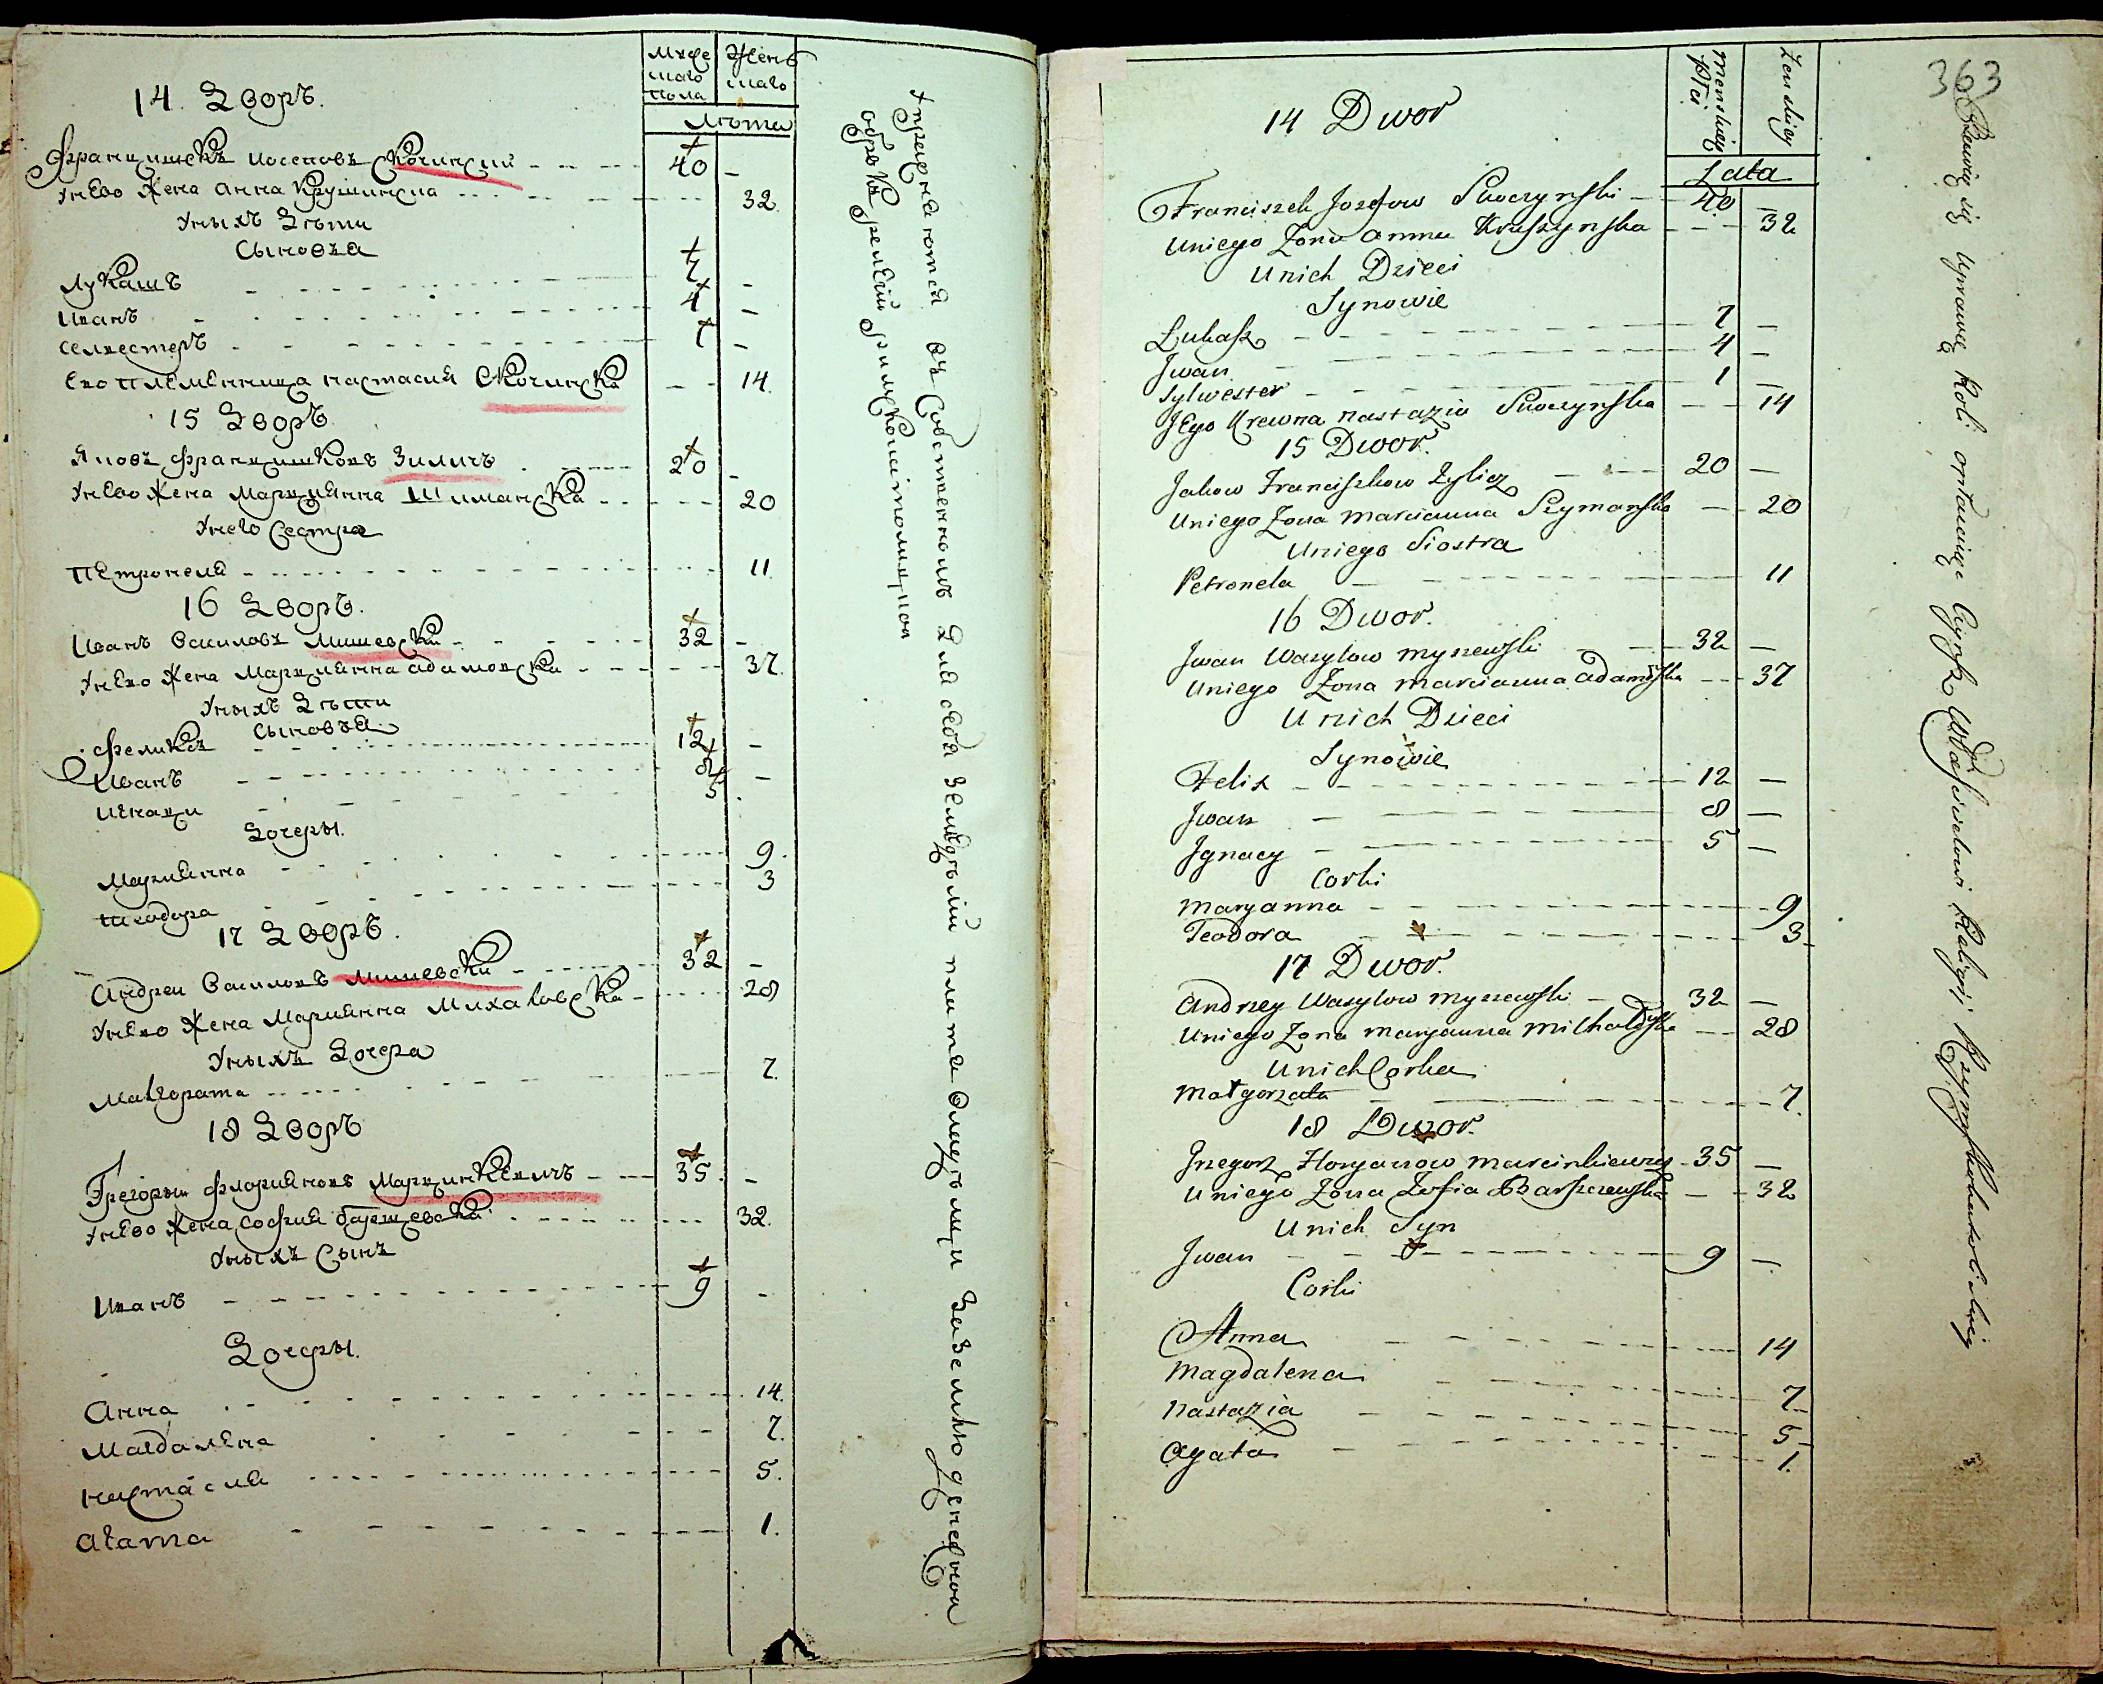 Мужескаго пола
Женскаго
Лѣта
14. Дворъ.
Францишекъ иосеповъ Скочинский 40 -
Унево жена анна Крушинска 32
Уныхъ Дѣти
Сыновья
Лукашъ 7 -
Иванъ 4 -
Селвестеръ 1 -
Ево племенница настасия Скочинска 14.
15 Дворъ
Яковъ францишковъ Зиличъ 20 -
Унево жена Марциянна Шиманска 20
Унего Сестра
Петронеля 11.
16 Дворъ.
Иванъ василовъ Мишевски 32 -
Унево жена Марциянна адамовска 37.
Уныхъ Дѣти
Сыновья.
феликсъ 12 -
Иванъ 8 -
Игнаци 5
Дочеры.
Мариянна 9.
теодора 3
17 Дворъ.
Андреи Василовъ мишевски 32 -
Унево жена Мариянна Михаловска 28
Уныхъ Дочера
Малгората 7.
18 Дворъ
Грегорыи флорияновъ Марцинкевичъ 35. -
Унево жена, софия баршевска 32.
Уныхъ Сынъ
Иванъ 9 -
Дочеры.
Анна 14.
Магдалена 7.
настасия 5.
агата 1.
въ Собственномъ для себя
363
Menskiey Płci
Zenskiey
Lata
14 Dwor
Franciszek Jozefow Skoczynski 40 -
Uniego Zona anna Kruszynska 32
Unich Dzieci
Synowie
Łukasz 7 -
Jwan 4 -
Sylwester 1 -
JEgo Krewna nastazia Skoczynska 14
15 Dwor.
Jakow Franciszkow Zylicz 20 -
Uniego Zona marcianna Szymanska 20
Uniego Siostra
Petronela 11
16 Dwor.
Jwan Wasylow myszewski 32 -
Uniego Zona marcianna adamowska 37
Unich Dzieci
Synowie
Felix 12 -
Jwan 8 -
Jgnacy 5 -
Corki
Maryanna 9
Teodora 3
17 Dwor.
Andrzey Wasylow myszewski 32 -
Uniego Zona maryanna michałowska 28
Unich Corka
Małgorzata 7.
18 Dwor.
Grzegorz Floryanow marcinkiewicz 35 -
Uniego Zona Zofia Barszczewska 32
Unich Syn
Jwan 9 -
Corki
Anna 14
Magdalena 7
Nastazia 5
Agata 1.